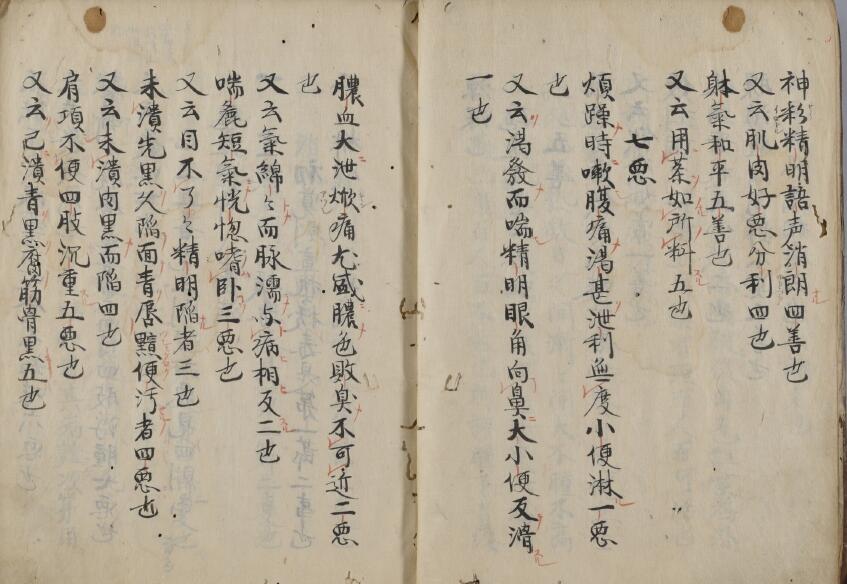 神彩精明語声清朗四善也
又云肌肉好悪分利四也
躰氣和平五善也
又云用薬如所料五也
七悪
煩躁時嗽腹痛渇甚泄利無度小便淋一悪
也
又云渇發而喘精明眼角向鼻大小便反滑
一也
膿血大泄焮痛尤盛膿色敗臭不可近二悪
也
又云氣綿々而脉濡与病相反二也
喘麁短氣恍惚嗜卧三悪也
又云目不了々精明陥者三也
未潰先黒久陥面青唇黯便汚者四悪也
又云未潰肉黒而陥四也
肩項不便四肢沉重五悪也
又云已潰青黒腐筋骨黒五也